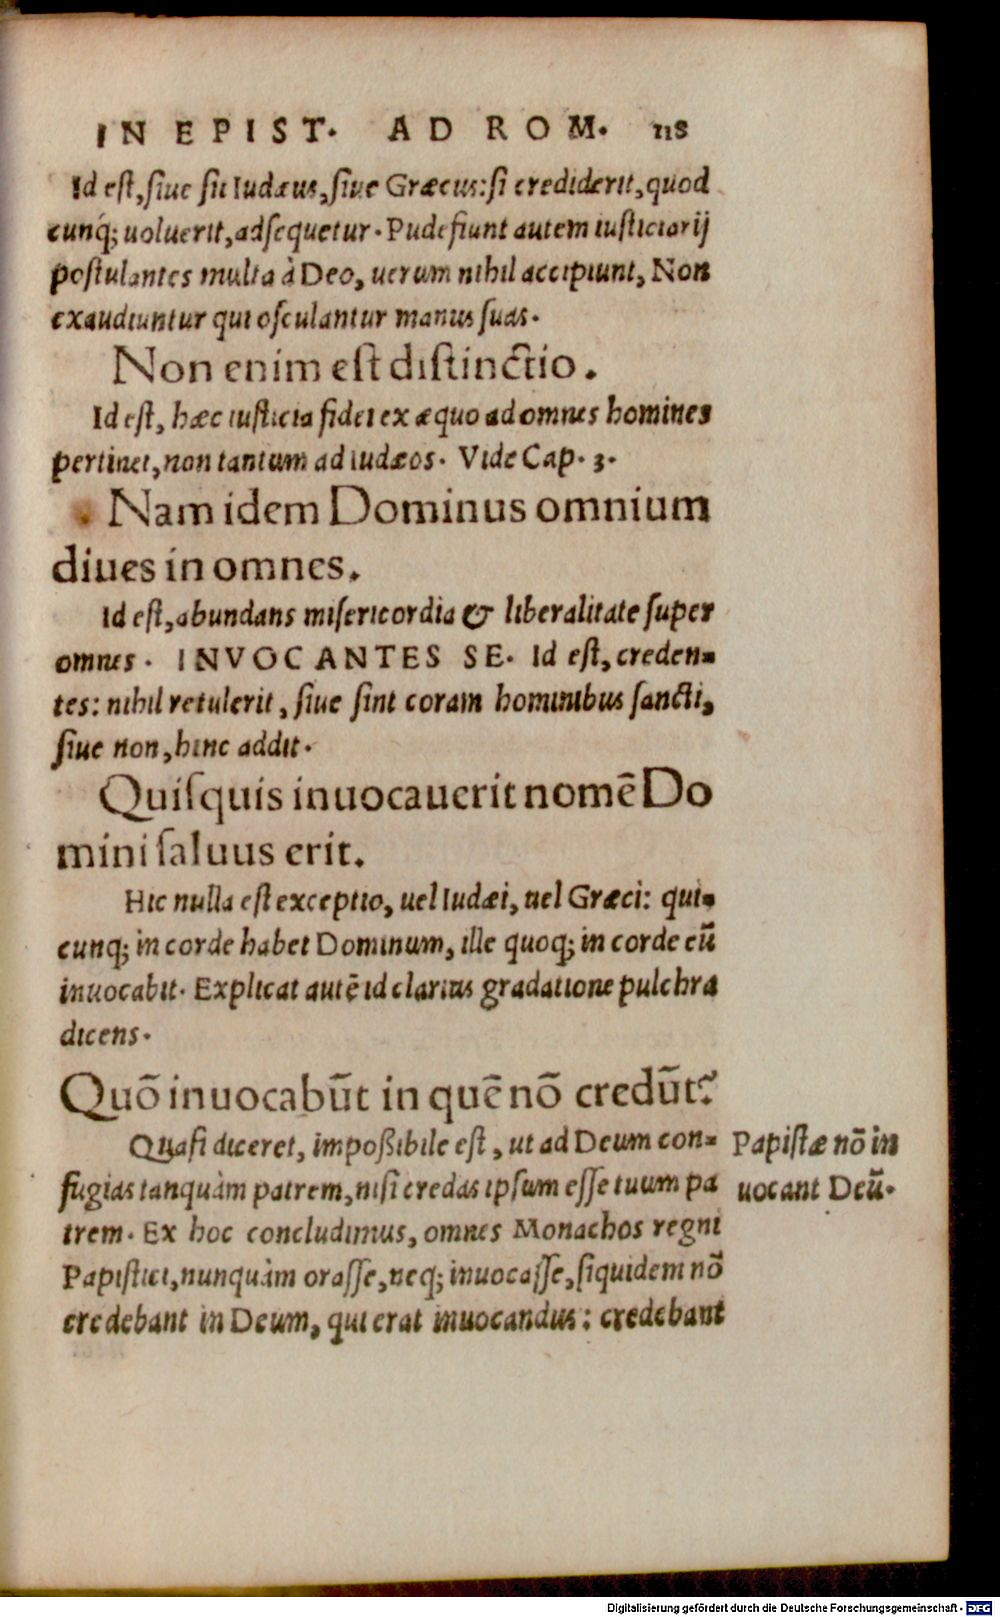 IN EPIST. AD ROM. 118
Id est, siue sit Iudæus, siue Græcus: si crediderit, quod
cunq; uoluerit, adsequetur. Pudefiunt autem iusticiarij
postulantes multa à Deo, uerum nihil accipiunt, Non
exaudiuntur qui osculantur manus suas.
Non enim est distinctio.
Id est, hæc iusticia fidei ex æquo ad omnes homines
pertinet, non tantum ad iudæos. Vide Cap. 3.
Nam idem Dominus omnium
diues in omnes.
Id est, abundans misericordia & liberalitate super
omnes. INVOCANTES SE. Id est, creden=
tes: nihil retulerit, siue sint coram hominibus sancti,
siue non, hinc addit.
Quisquis inuocauerit nomē Do
mini saluus erit.
Hic nulla est exceptio, uel Iudæi, uel Græci: qui=
cunq; in corde habet Dominum, ille quoq; in corde eū
inuocabit. Explicat autē id clarius gradatione pulchra
dicens.
Quō inuocabūt in quē nō credūt?
Quasi diceret, impoßibile est, ut ad Deum con=
fugias tanquàm patrem, nisi credas ipsum esse tuum pa
trem. Ex hoc concludimus, omnes Monachos regni
Papistici, nunquàm orasse, neq; inuocasse, siquidem nō
credebant in Deum, qui erat inuocandus: credebant
Papistæ nō in
uocant Deū.
Digitalisierung gefördert durch die Deutsche Forschungsgemeinschaft - DFG